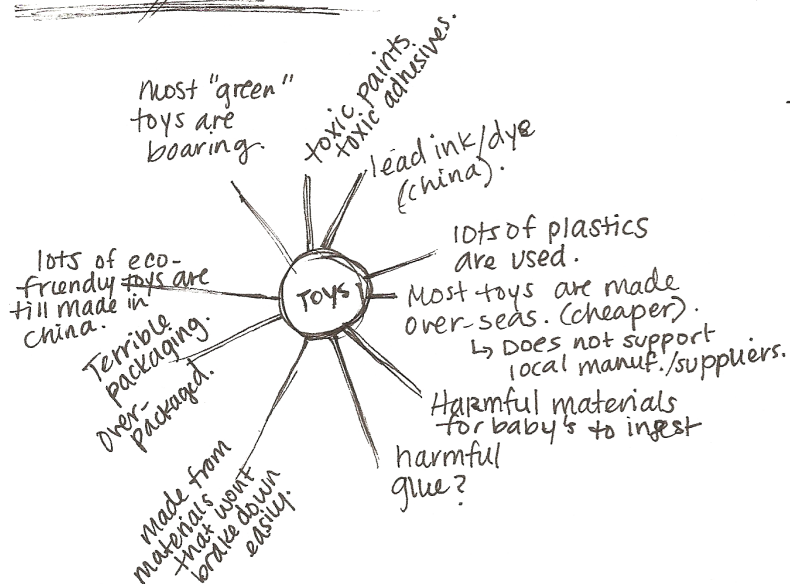 most "green"
toys are
boaring.
toxic paints
toxic adhesives.
lead ink/dye
(china).
lots of plastics
are used.
Most toys are made
over-seas. (cheaper).
↳ Does not support
local manuf./suppliers.
Harmful materials
for baby's to ingest
harmful
glue?
made from
materials
that wont
brake down
easily.
Terrible
packaging.
over-
packaged.
lots of eco-
friendly toys are
till made in
china.
TOYS